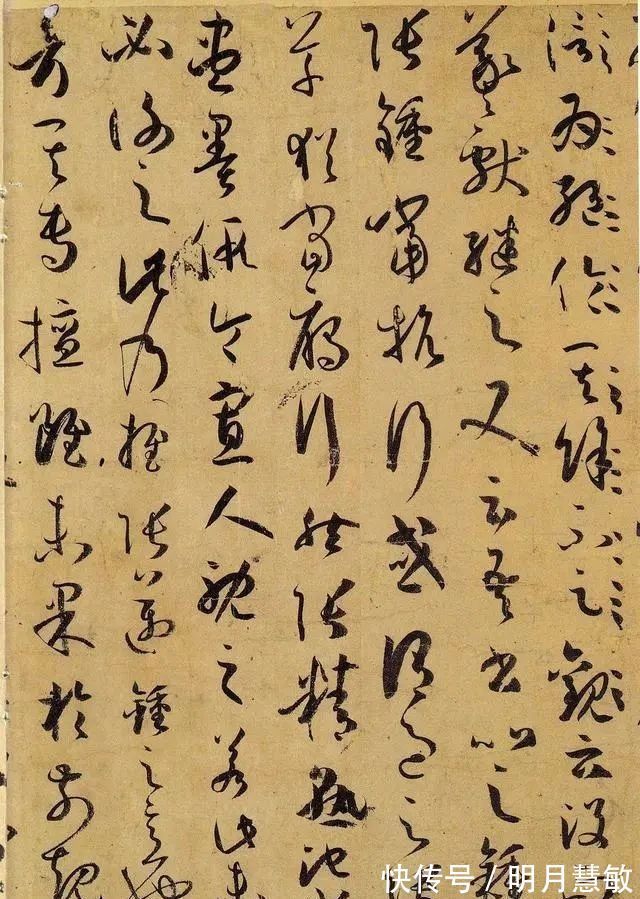 為絕倫其餘不足觀云沒
羲獻繼之又云吾書比之鍾
張鍾當抗行或謂過之張
草猶當雁行然張精熟池水
盡墨假令寡人耽之若此未
必謝之此乃推張邁鍾之意也
考其專擅雖未果於前規
快传号/明月慧敏